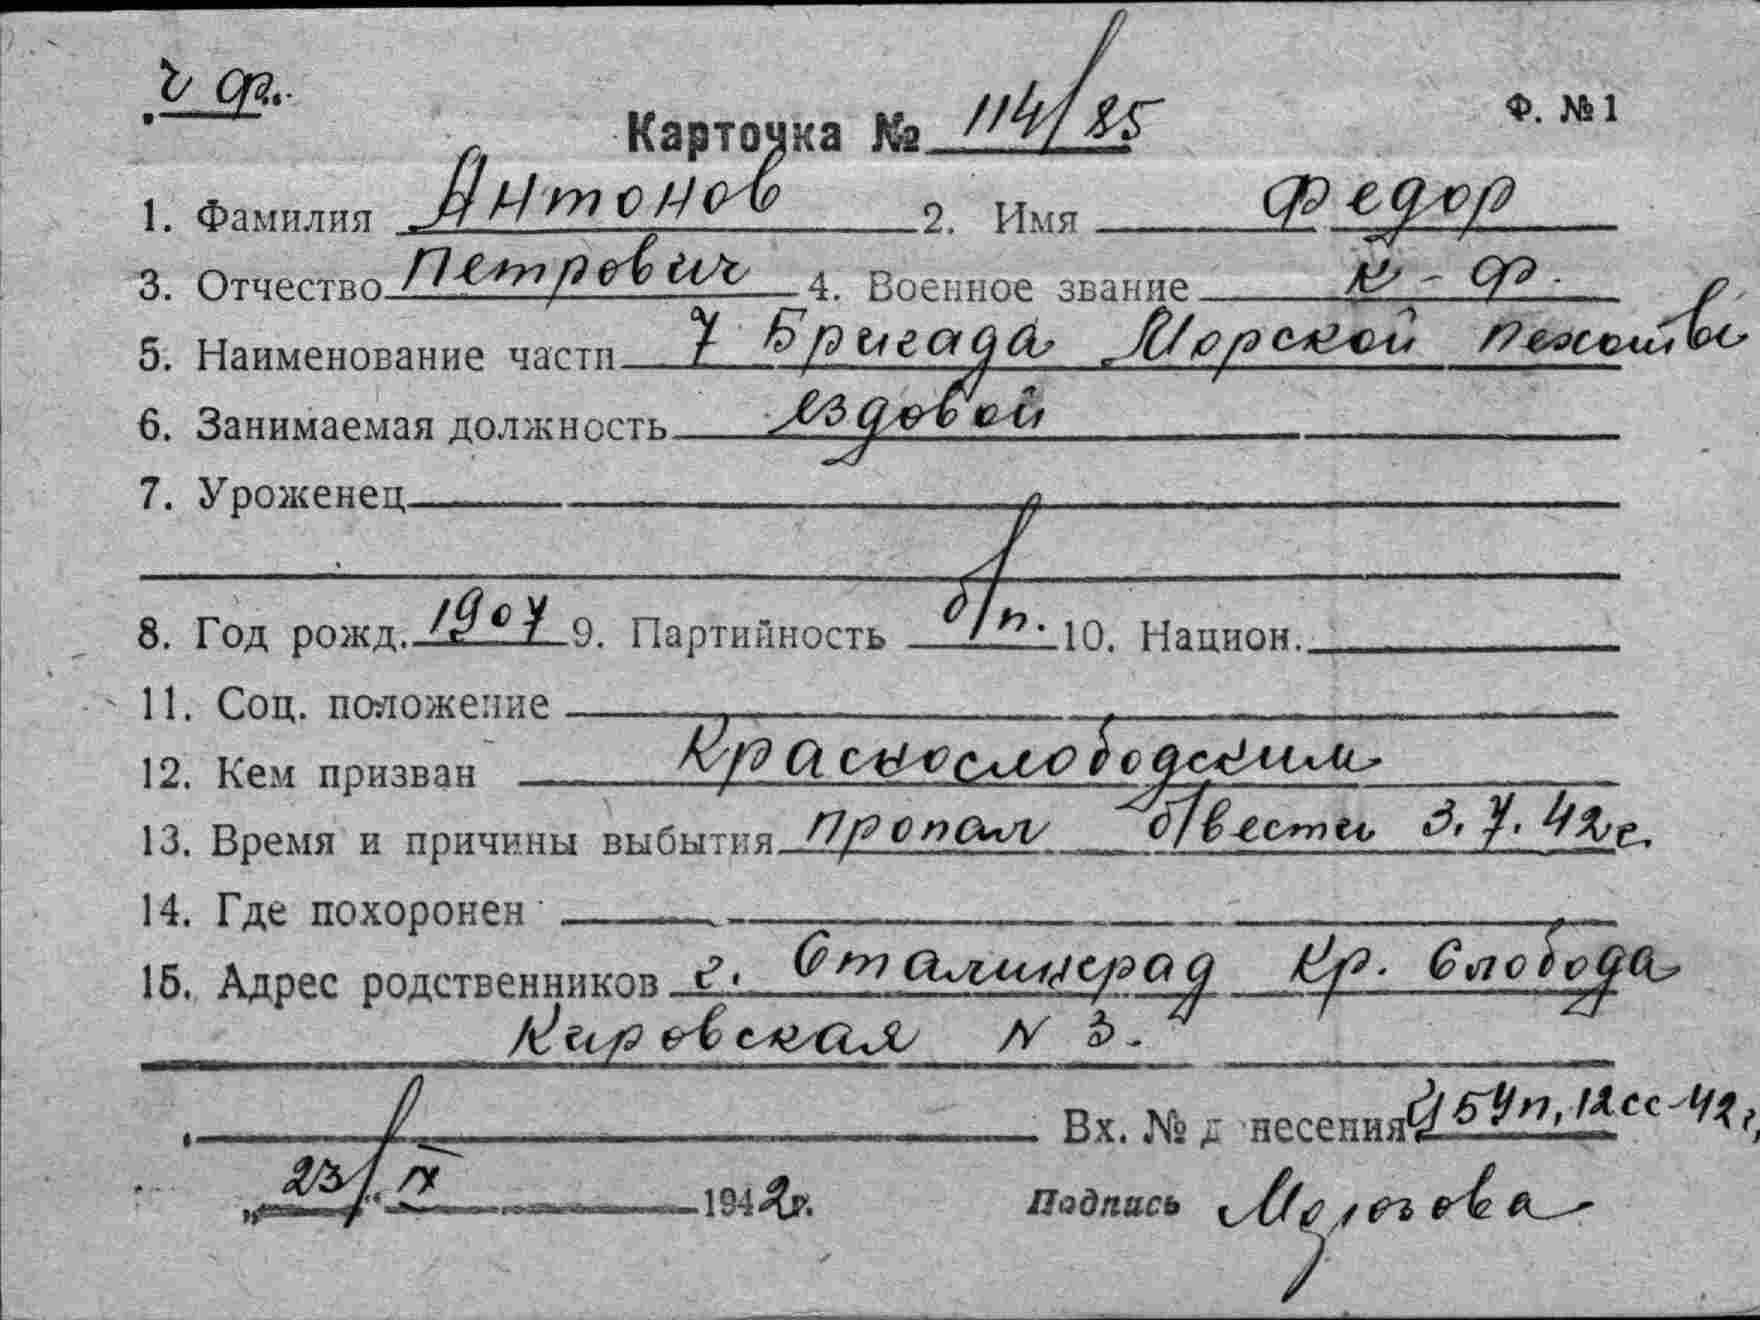 ч ф.
Ф. №1
Карточка № 114/85
1. Фамилия Антонов 2. Имя Федор
3. Отчество Петрович 4. Военное звание к-ф.
5. Наименование части 7 Бригада Морской пехоты
6. Занимаемая должность ездовой
7. Уроженец
8. Год рожд. 1907 9. Партийность б/п. 10. Национ.
11. Соц. положение
12. Кем призван Краснослободским
13. Время и причины выбытия пропал б/вести 3.7.42г.
14. Где похоронен
15. Адрес родственников г. Сталинград Кр. Слобода
Кировская N 3.
Вх. № д несения 12сс-42г.
„23/“ IX 1942г. Подпись Морозова